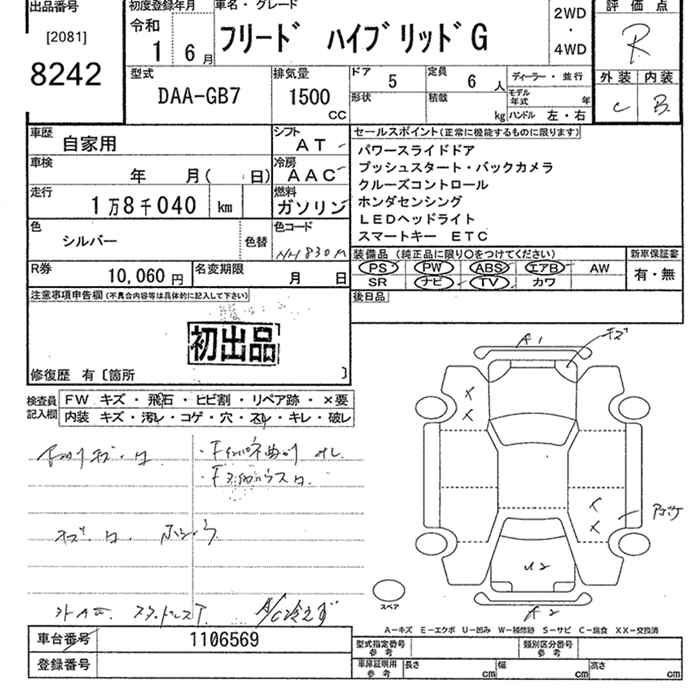 出品番号
[2081]
8242
初度登録年月
令和
1 6月
車名・グレード
フリード ハイブリッドG
2WD
・
4WD
評価点
R
外装 内装
C B
型式
DAA-GB7
排気量
1500
CC
ドア 5
定員 6 人
形状
積載 kg
ディーラー・並行
モデル年式 年
ハンドル 左・右
車歴 自家用
シフト AT
車検 年 月( 日)
冷房 AAC
走行 1万8千040 km
燃料 ガソリン
色 シルバー
色替
色コード NH830M
R券 10,060円
名変期限 月 日
セールスポイント(正常に機能するものに限ります)
パワースライドドア
プッシュスタート・バックカメラ
クルーズコントロール
ホンダセンシング
LEDヘッドライト
スマートキー ETC
装備品 (純正品に限り○をつけてください)
新車保証書
PS PW ABS エアB AW
SR ナビ TV カワ
有・無
後日品
注意事項申告欄(不具合内容等は具体的に記入して下さい)
初出品
修復歴 有〔箇所 〕
検査員記入欄
FW キズ・飛石・ヒビ割・リペア跡・×要
内装 キズ・汚レ・コゲ・穴・スレ・キレ・破レ
A1
キズ
U2
A2
スペア
A−キズ E−エクボ U−凹み W−補修跡 S−サビ C−腐食 XX−交換済
車台番号 1106569
登録番号
型式指定番号 参考
類別区分番号 参考
車庫証明用 参考
長さ cm 幅 cm 高さ cm